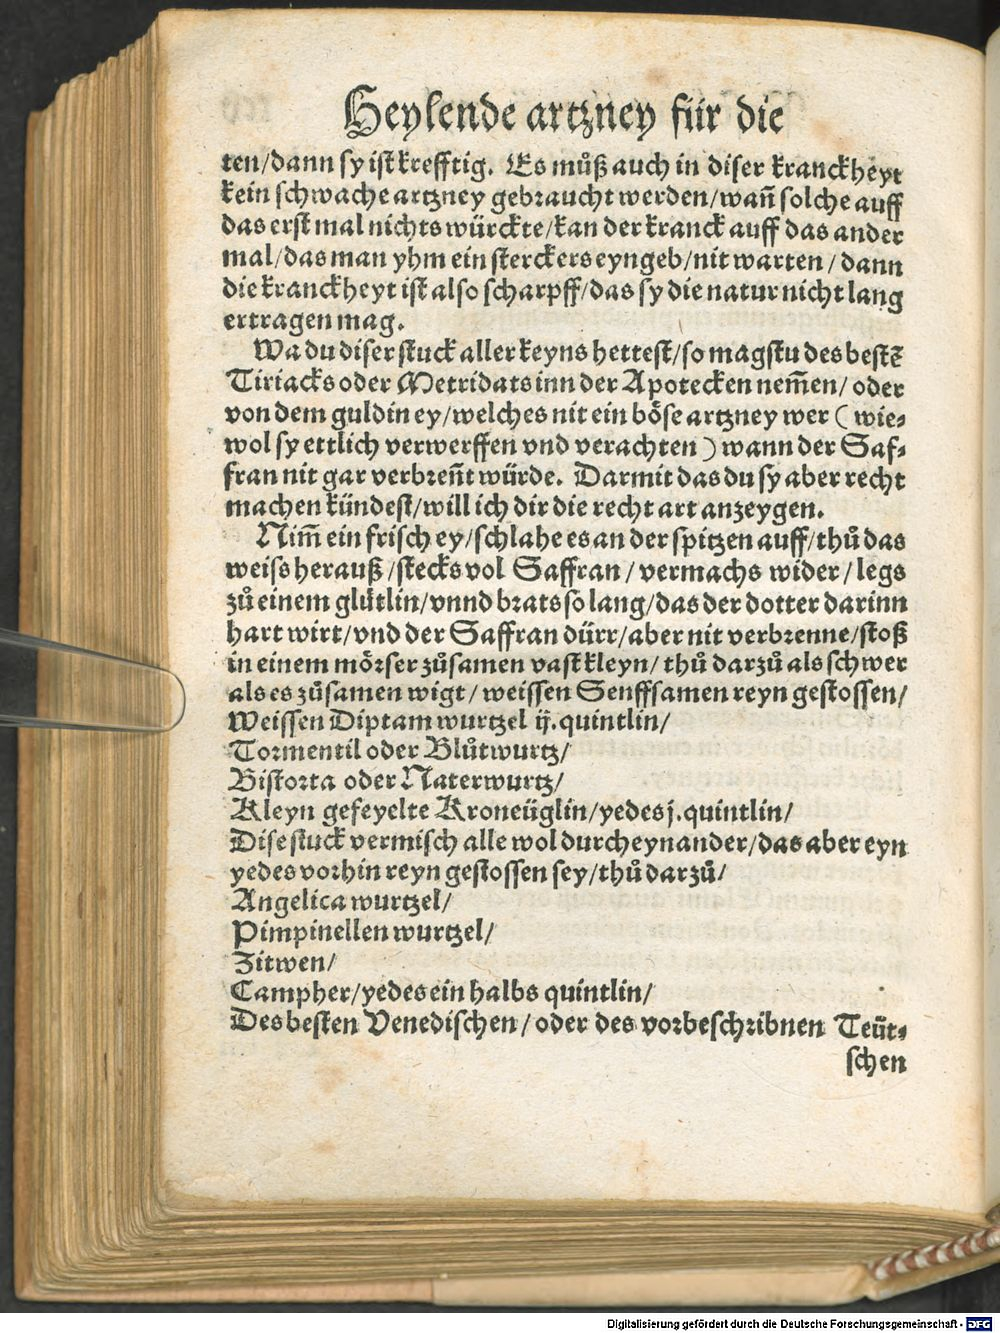 Heylende artzney für die
ten/dann sy ist krefftig. Es můß auch in diser kranckheyt
kein schwache artzney gebraucht werden/wañ solche auff
das erst mal nichts würckte/kan der kranck auff das ander
mal/das man yhm ein sterckers eyngeb/nit warten/dann
die kranckheyt ist also scharpff/das sy die natur nicht lang
ertragen mag.
Wa du diser stuck aller keyns hettest/so magstu des bestẽ
Tiriacks oder Metridats inn der Apotecken nem̃en/oder
von dem guldin ey/welches nit ein böse artzney wer (wie-
wol sy ettlich verwerffen vnd verachten) wann der Saf-
fran nit gar verbreñt würde. Darmit das du sy aber recht
machen kündest/will ich dir die recht art anzeygen.
Nim̃ ein frisch ey/schlahe es an der spitzen auff/thů das
weiss herauß/stecks vol Saffran/vermachs wider/legs
zů einem glütlin/vnnd brats so lang/das der dotter darinn
hart wirt/vnd der Saffran dürr/aber nit verbrenne/stoß
in einem mörser zůsamen vast kleyn/thů darzů als schwer
als es zůsamen wigt/weissen Senffsamen reyn gestossen/
Weissen Diptam wurtzel ij. quintlin/
Tormentil oder Blůtwurtz/
Bistorta oder Naterwurtz/
Kleyn gefeyelte Kroneüglin/yedes j. quintlin/
Dise stuck vermisch alle wol durcheynander/das aber eyn
yedes vorhin reyn gestossen sey/thů darzů/
Angelica wurtzel/
Pimpinellen wurtzel/
Zitwen/
Campher/yedes ein halbs quintlin/
Des besten Venedischen/oder des vorbeschribnen Teüt-
schen
Digitalisierung gefördert durch die Deutsche Forschungsgemeinschaft - DFG